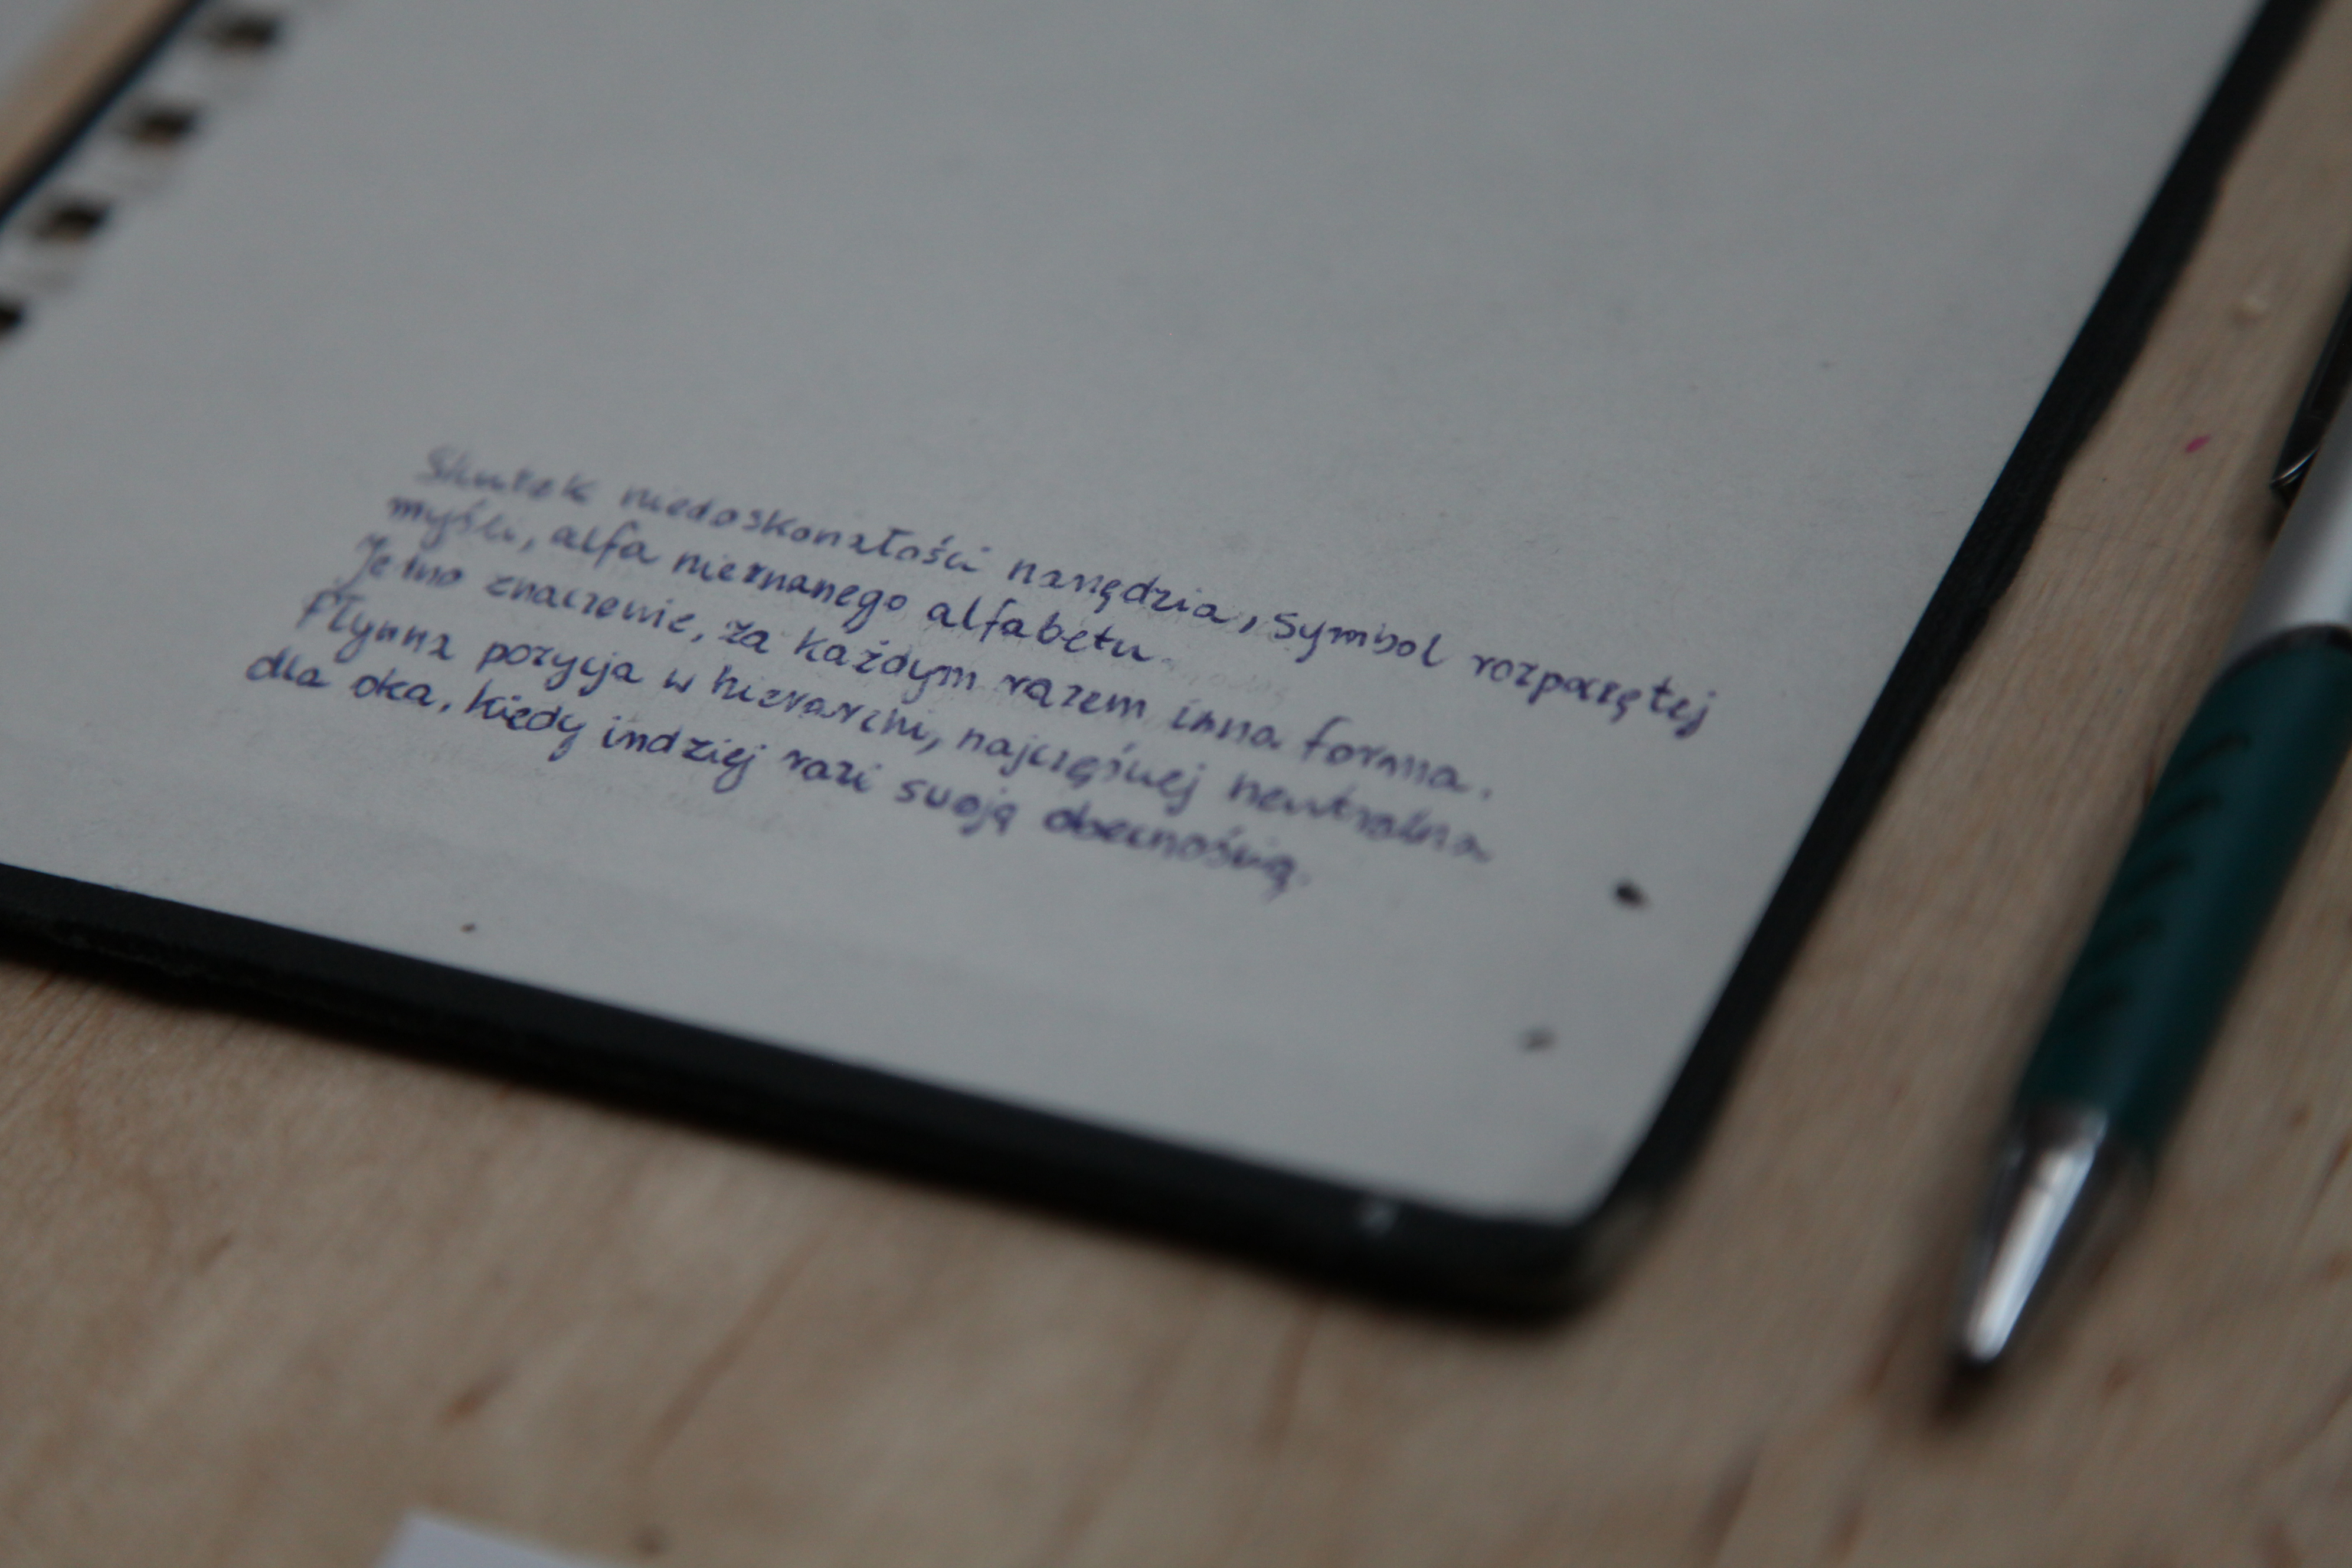 Skutek niedoskonałości narzędzia, symbol rozpoczętej
myśli, alfa nieznanego alfabetu.
Jedno znaczenie, za każdym razem inna forma.
Płynna pozycja w hierarchii, najczęściej neutralna
dla oka, kiedy indziej razi swoją obecnością.